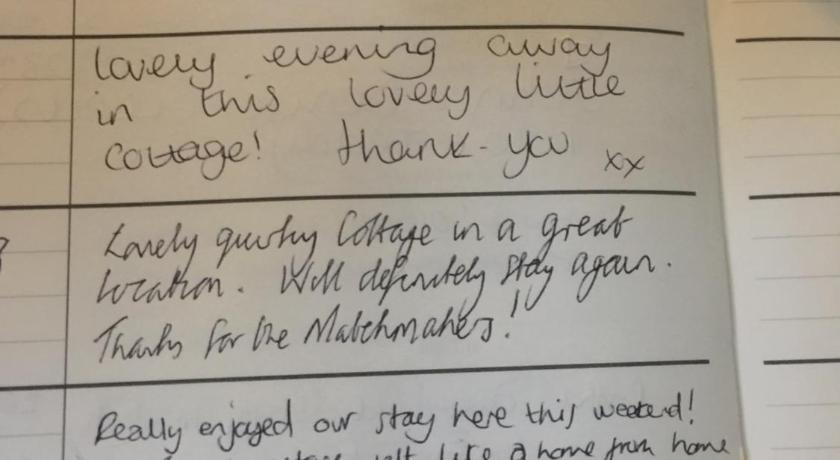 lovely evening away
in this lovely little
cottage! thank-you xx
Lovely quirky Cottage in a great
location. Will definitely stay again.
Thanks for the Matchmakers!!
Really enjoyed our stay here this weekend!
felt like a home from home